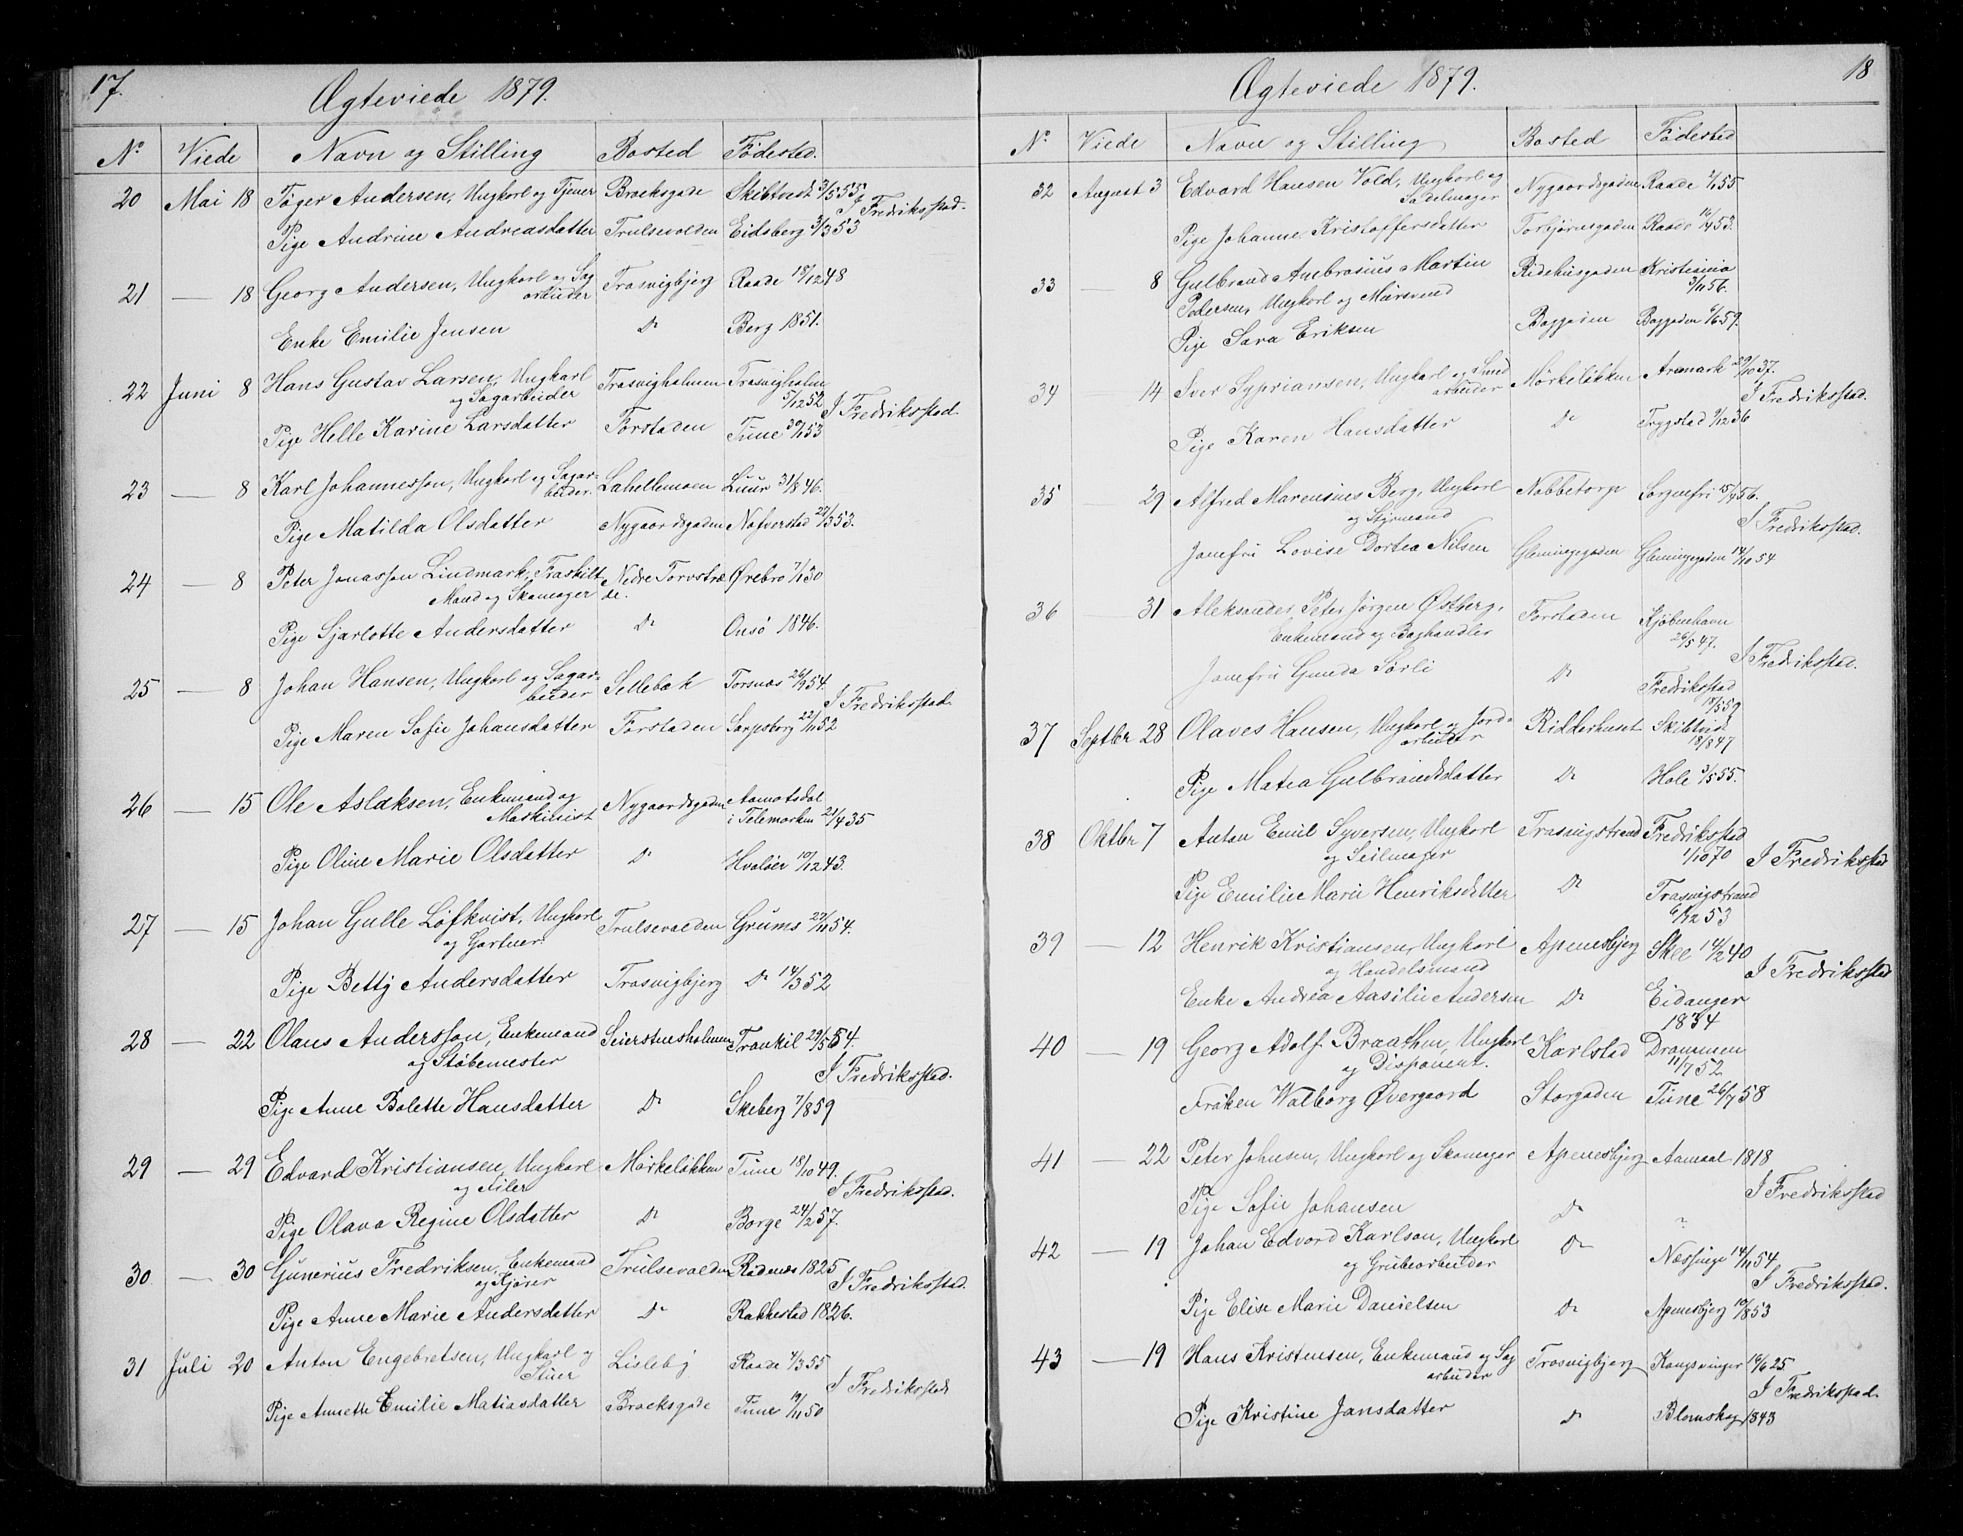 17.
Ægteviede 1879.
No Viede Navn og Stilling Bosted Fødested.
20 Mai 18 Töger Andersen, Ungkarl og Tjener Brocksgade Skibtvedt 3/5 55
I Fredriksstad.
Pige Andrine Andreasdatter Trulsevolden Eidsberg 3/3 53
21 — 18 Georg Andersen, Ungkarl og Sag Trosvigbjerg Raade 18/12 48
arbeider
Enke Emilie Jensen Do Berg 1851.
22 Juni 8 Hans Gustav Larsen, Ungkarl Trosvigholmen Trosvigholm
og Sagarbeider 5/12 52
I Fredriksstad.
Pige Helle Karine Larsdatter Forstaden Tune 30/1 53
23 — 8 Karl Johannesson, Ungkarl og Sagar- Lahellemoen Luur 31/8 46.
beider.
Pige Matilda Olsdatter Nygaardsgaden Nafverstad 22/3 53.
24 — 8 Peter Jonasson Lindmark, Fraskilt Nedre Torvstræ Ørebro 7/1 30
Mand og Skomager de.
Pige Sjarlotte Andersdatter Do Onsö 1846.
25 — 8 Johan Hansen, Ungkarl og Sagar- Sellebak Torsnæs 26/9 54.
beider
I Fredriksstad.
Pige Maren Sofie Johansdatter Forstaden Sarpsborg 22/11 52
26 — 15 Ole Aslaksen, Enkemand og Nygaardsgaden Aamotsdal
Maskinist i Telemarken 21/4 35
Pige Oline Marie Olsdatter Do Hvaløer 10/12 43.
27 — 15 Johan Gulle Löfkvist, Ungkarl Trulsevolden Grums 27/11 54.
og Gartner
Pige Betty Andersdatter Trosvigbjerg Do 14/3 52
28 — 22 Olaus Andersson, Enkemand Seierstensholmen Trankil 29/5 54.
og Støbemester
I Fredriksstad.
Pige Anne Bolette Hansdatter Do Skeberg 7/8 59
29 — 29 Edvard Kristiansen, Ungkarl Mørkeløkken Tune 18/10 49.
og Filer
I Fredriksstad.
Pige Olava Regine Olsdatter Do Borge 24/2 57.
30 — 30 Gunerius Fredriksen, Enkemand Trulsevolden Rødenæs 1825
og Kjører
I Fredriksstad.
Pige Anne Marie Andersdatter Do Rakkestad 1826.
31 Juli 20 Anton Engebretsen, Ungkarl og Lisleby Raade 7/3 55
Stuer
I Fredriksstad
Pige Annette Emilie Matiasdatter Brocksgade Tune 19/11 50
18
Ægteviede 1879.
No Viede Navn og Stilling Bosted Fødested
32 August 3 Edvard Hansen Vold, Ungkarl og Nygaardsgaden Raade 7/1 55
Sadelmager
Pige Johanne Kristoffersdatter Torbjørnsgaden Raade 16/4 53.
33 — 8 Gulbrand Ambrosius Martin Ridehusgaden Kristiania
Pedersen, Ungkarl og Mursvend 3/11 56.
Pige Sara Eriksen Baggaden Baggaden 6/6 59.
34 — 14 Iver Sypriansen, Ungkarl og Smed Mörkelökken Aremark 29/10 37.
arbeider
I Fredriksstad.
Pige Karen Hansdatter Do Trygstad 9/12 36
35 — 29 Alfred Marensius Berg, Ungkarl Nabbetorp Sorgenfri 15/4 56.
og Styrmand
I Fredriksstad.
Jomfru Lovise Dortea Nilsen Glemmingegaden Glemmingegaden 14/10 54
36 — 31 Aleksander Peter Jörgen Østberg, Forstaden Kjöbenhavn
Enkemand og Boghandler 26/5 47.
I Fredriksstad.
Jomfru Gunda Sörli Do Fredriksstad
19/5 59
37 Septbr 28 Olaves Hansen, Ungkarl og Jord- Ridderhuset Skibtvedt
arbeider 18/8 47
Pige Matea Gulbrandsdatter Do Hole 3/5 55.
38 Oktbr 7 Anton Emil Syversen, Ungkarl Trosvigstrand Fredriksstad
og Seilmager 1/10 70
I Fredriksstad
Pige Emilie Marie Henriksdatter Do Trosvigstrand
6/12 53
39 — 12 Henrik Kristiansen, Ungkarl Apenesbjerg Skee 14/2 40
og Handelsmand
I Fredriksstad
Enke Andrea Aasilie Andersen Do Eidanger
1834
40 — 19 Georg Adolf Braathen, Ungkarl Karlstad Drammen
og Disponent. 11/7 52
Fröken Walborg Øvergaard Storgaden Tune 26/7 58
41 — 22 Peter Johnsen, Ungkarl og Skomager Apenesbjerg Aamaal 1818
I Fredriksstad
Pige Sofie Johansen Do ?
42 — 19 Johan Edvard Karlson, Ungkarl Do Næssinge 14/11 54.
og Grubearbeider
I Fredriksstad.
Pige Elise Marie Danielsen Do Apenesbjerg 10/8 53
43 — 19 Hans Kristensen, Enkemand og Sag Trosvigbjerg Kongsvinger 16/6 25
arbeider
I Fredriksstad.
Pige Kristine Jansdatter Do Blomskog 1843